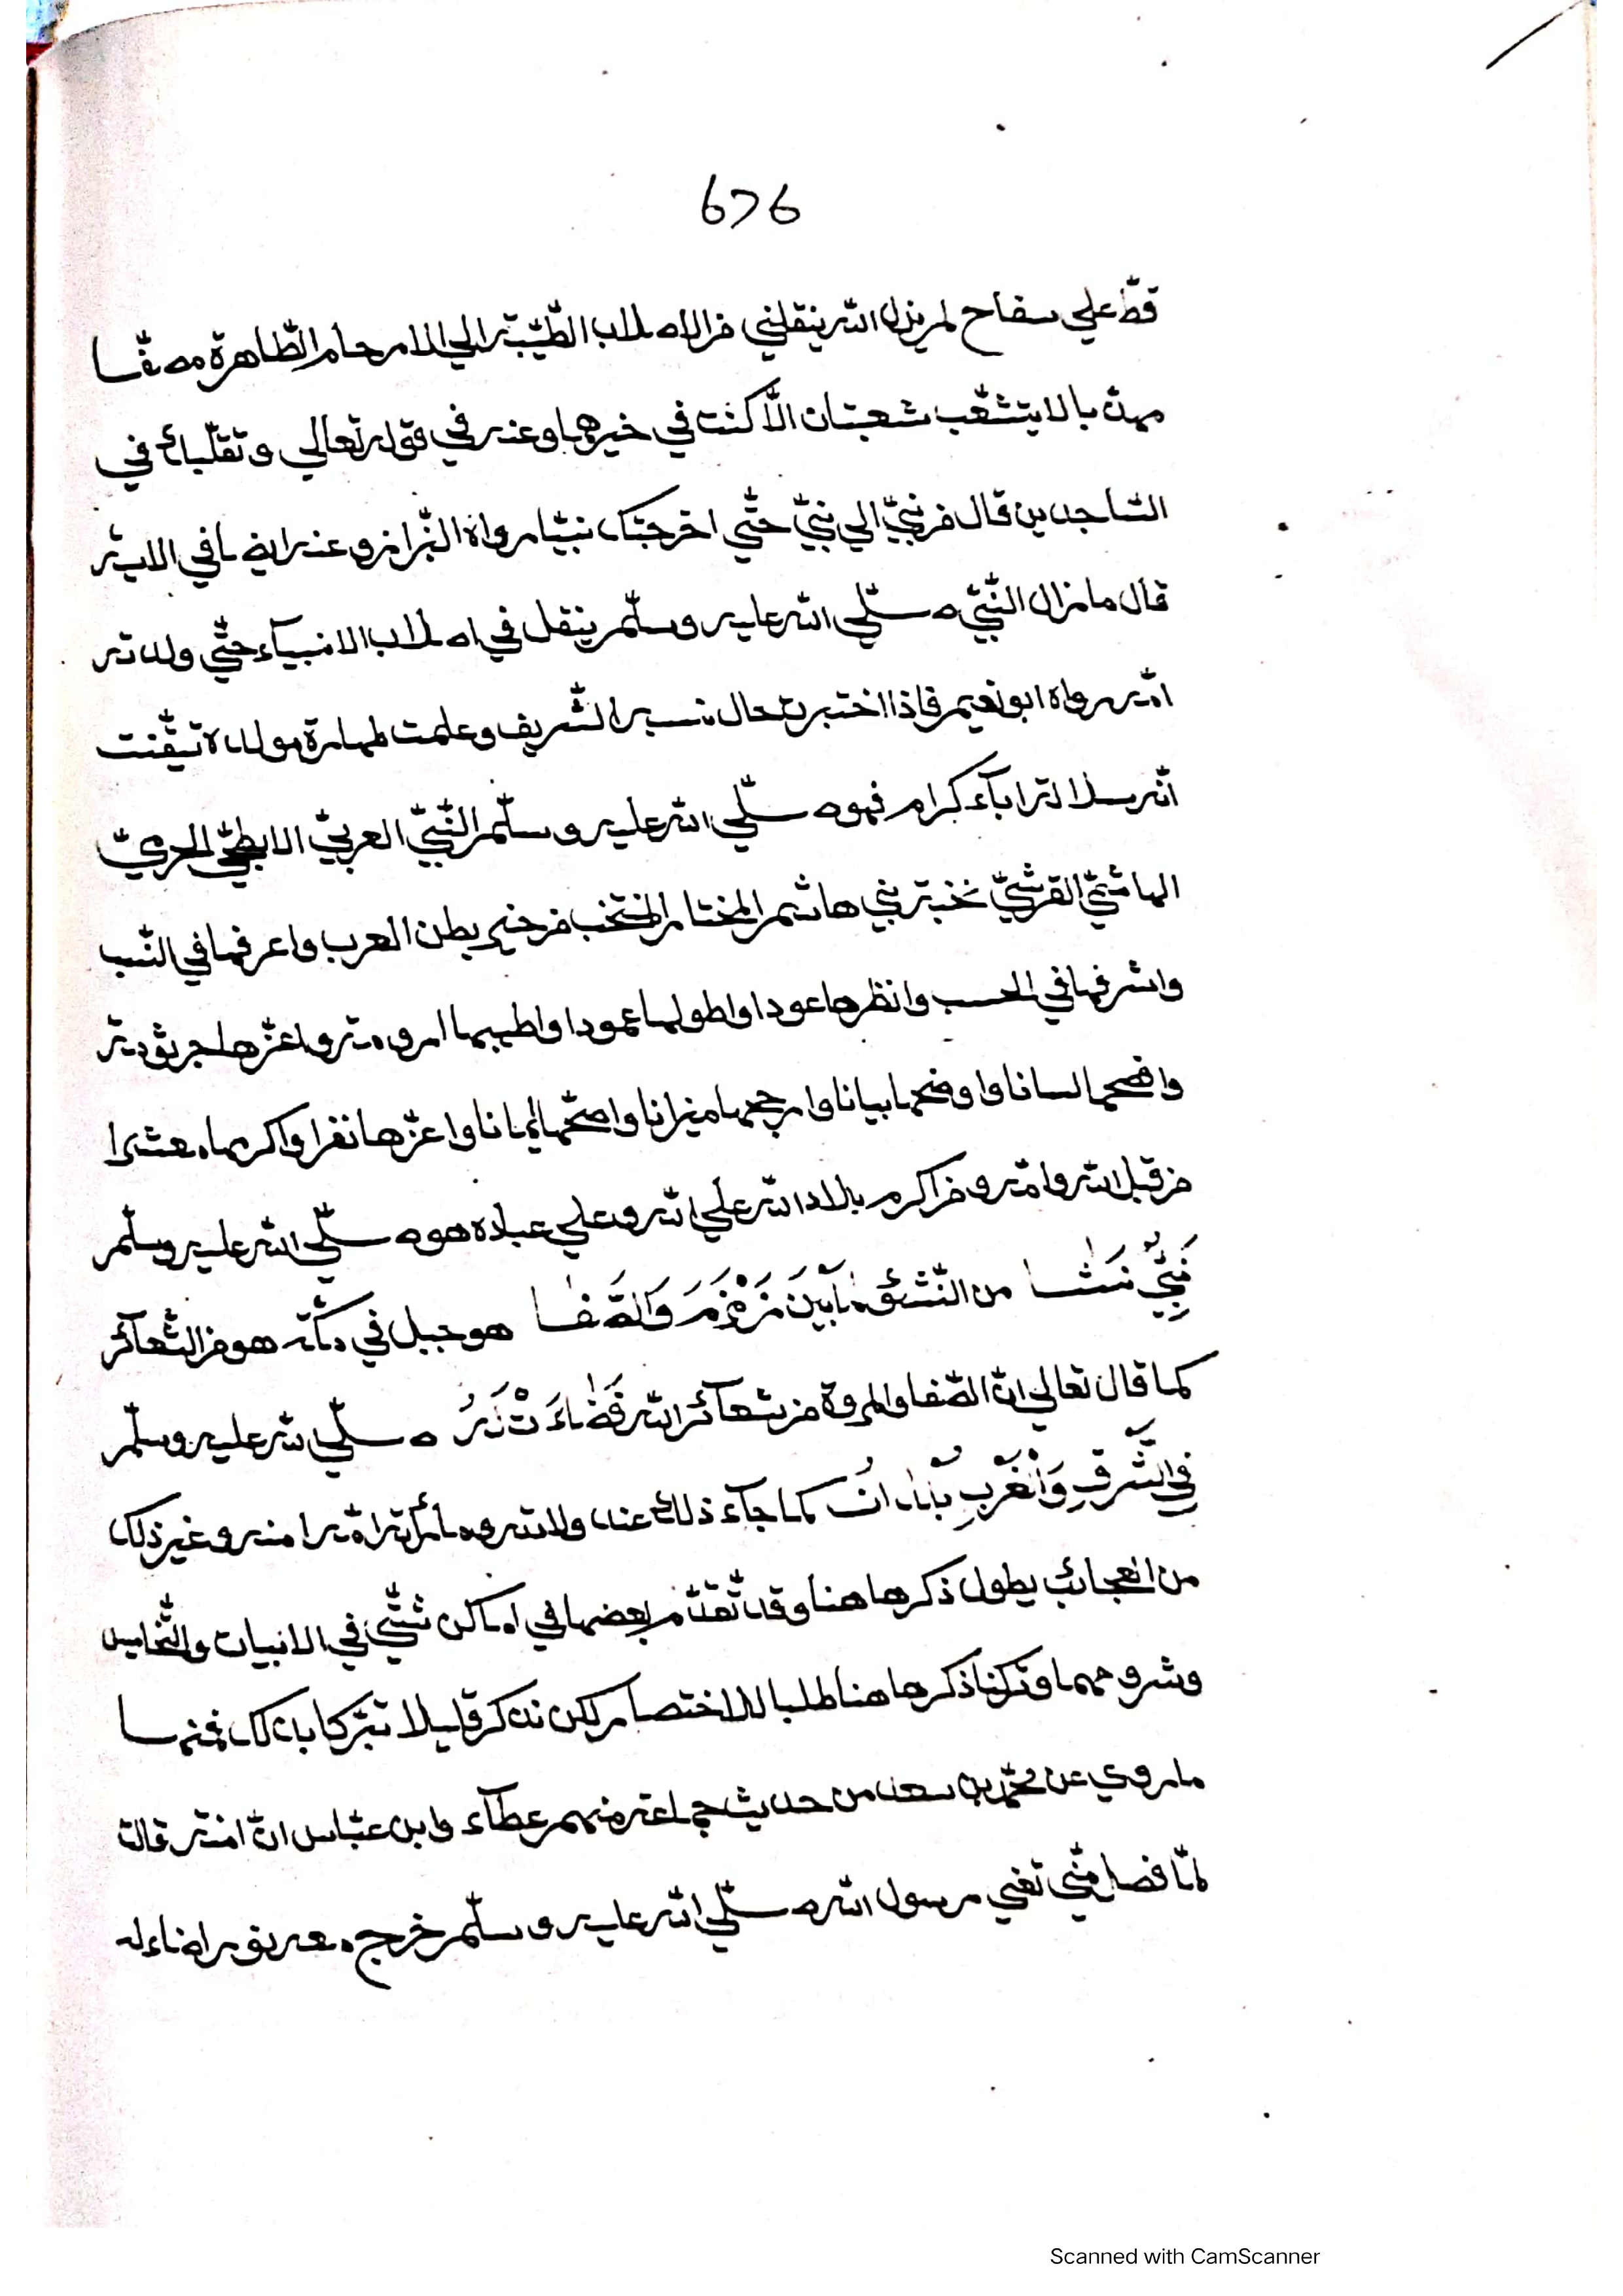 676
قطّ علي سفاح لم يزل اللّه ينقلني من الاصلاب الطّيّبة الي الارحام الطّاهرة مصفّا
مهذّبا لا يتشعّب شعبتان الّا كنت في خيرهما وعنه في قوله تعالي وتقلّبك في
السّاجدين قال من نبيّ الي نبيّ حتّي اخرجتك نبيّا رواه البّزاز وعنه ايضا في الاية
قال ما زال النّبيّ صلّي اللّه عليه وسلّم ينقل في اصلاب الانبيآء حتّي ولدته
امّه رواه ابو نعيم فاذا اختبرت حال نسبه الشّريف وعلمت طهارة مولده تيقّنت
انّه سلالة ابآء كرام فهو صلّي اللّه عليه وسلّم النّبيّ العربيّ الابطحيّ الحرميّ
الهاشميّ القرشيّ نخبة بني هاشم المختار المنتخب من خير بطن العرب واعرفها في النّسب
واشرفها في الحسب وانظرها عودا واطولها عمودا واطيبها ارومة واعزّها جرثومة
وافصحها لسانا واوضحها بيانا وارجحها ميزانا واصحّها ايمانا واعزّها نفرا واكرمها معشرا
من قبل ابيه وامّه ومن اكرم بلاد اللّه علي اللّه وعلي عباده هو صلّي اللّه عليه وسلّم
نَبِيٌّ نَشَا من النّشئ مَابَيْنَ زَمْزَمَ وَالصَّفَا هو جبل في مكّة هو من الشّعآئر
كما قال تعالي انّ الصّفا والمروة من شعآئر اللّه فَضَاءَتْ لَهُ صلّي اللّه عليه وسلّم
فِي الشَّرقِ وَالْغَرْبِ بُلْدَانُ كما جآء ذلك عند ولادته وما رأته امّه امنه وغير ذلك
من العجائب يطول ذكرها هنا وقد تقدّم بعضها في اماكن شتّي في الابيات والتّخاميس
وشروحهما وتركنا ذكرها هنا طلبا للاختصار لكن نذكر قليلا تبرّكا بذلك فمنها
ما روي عن محمّد بن سعد من حديث جماعة منهم عطآء وابن عبّاس انّ امنة قالت
لمّا فصل منّي تعني رسول اللّه صلّي اللّه عليه وسلّم خرج معه نور اضاء له
Scanned with CamScanner